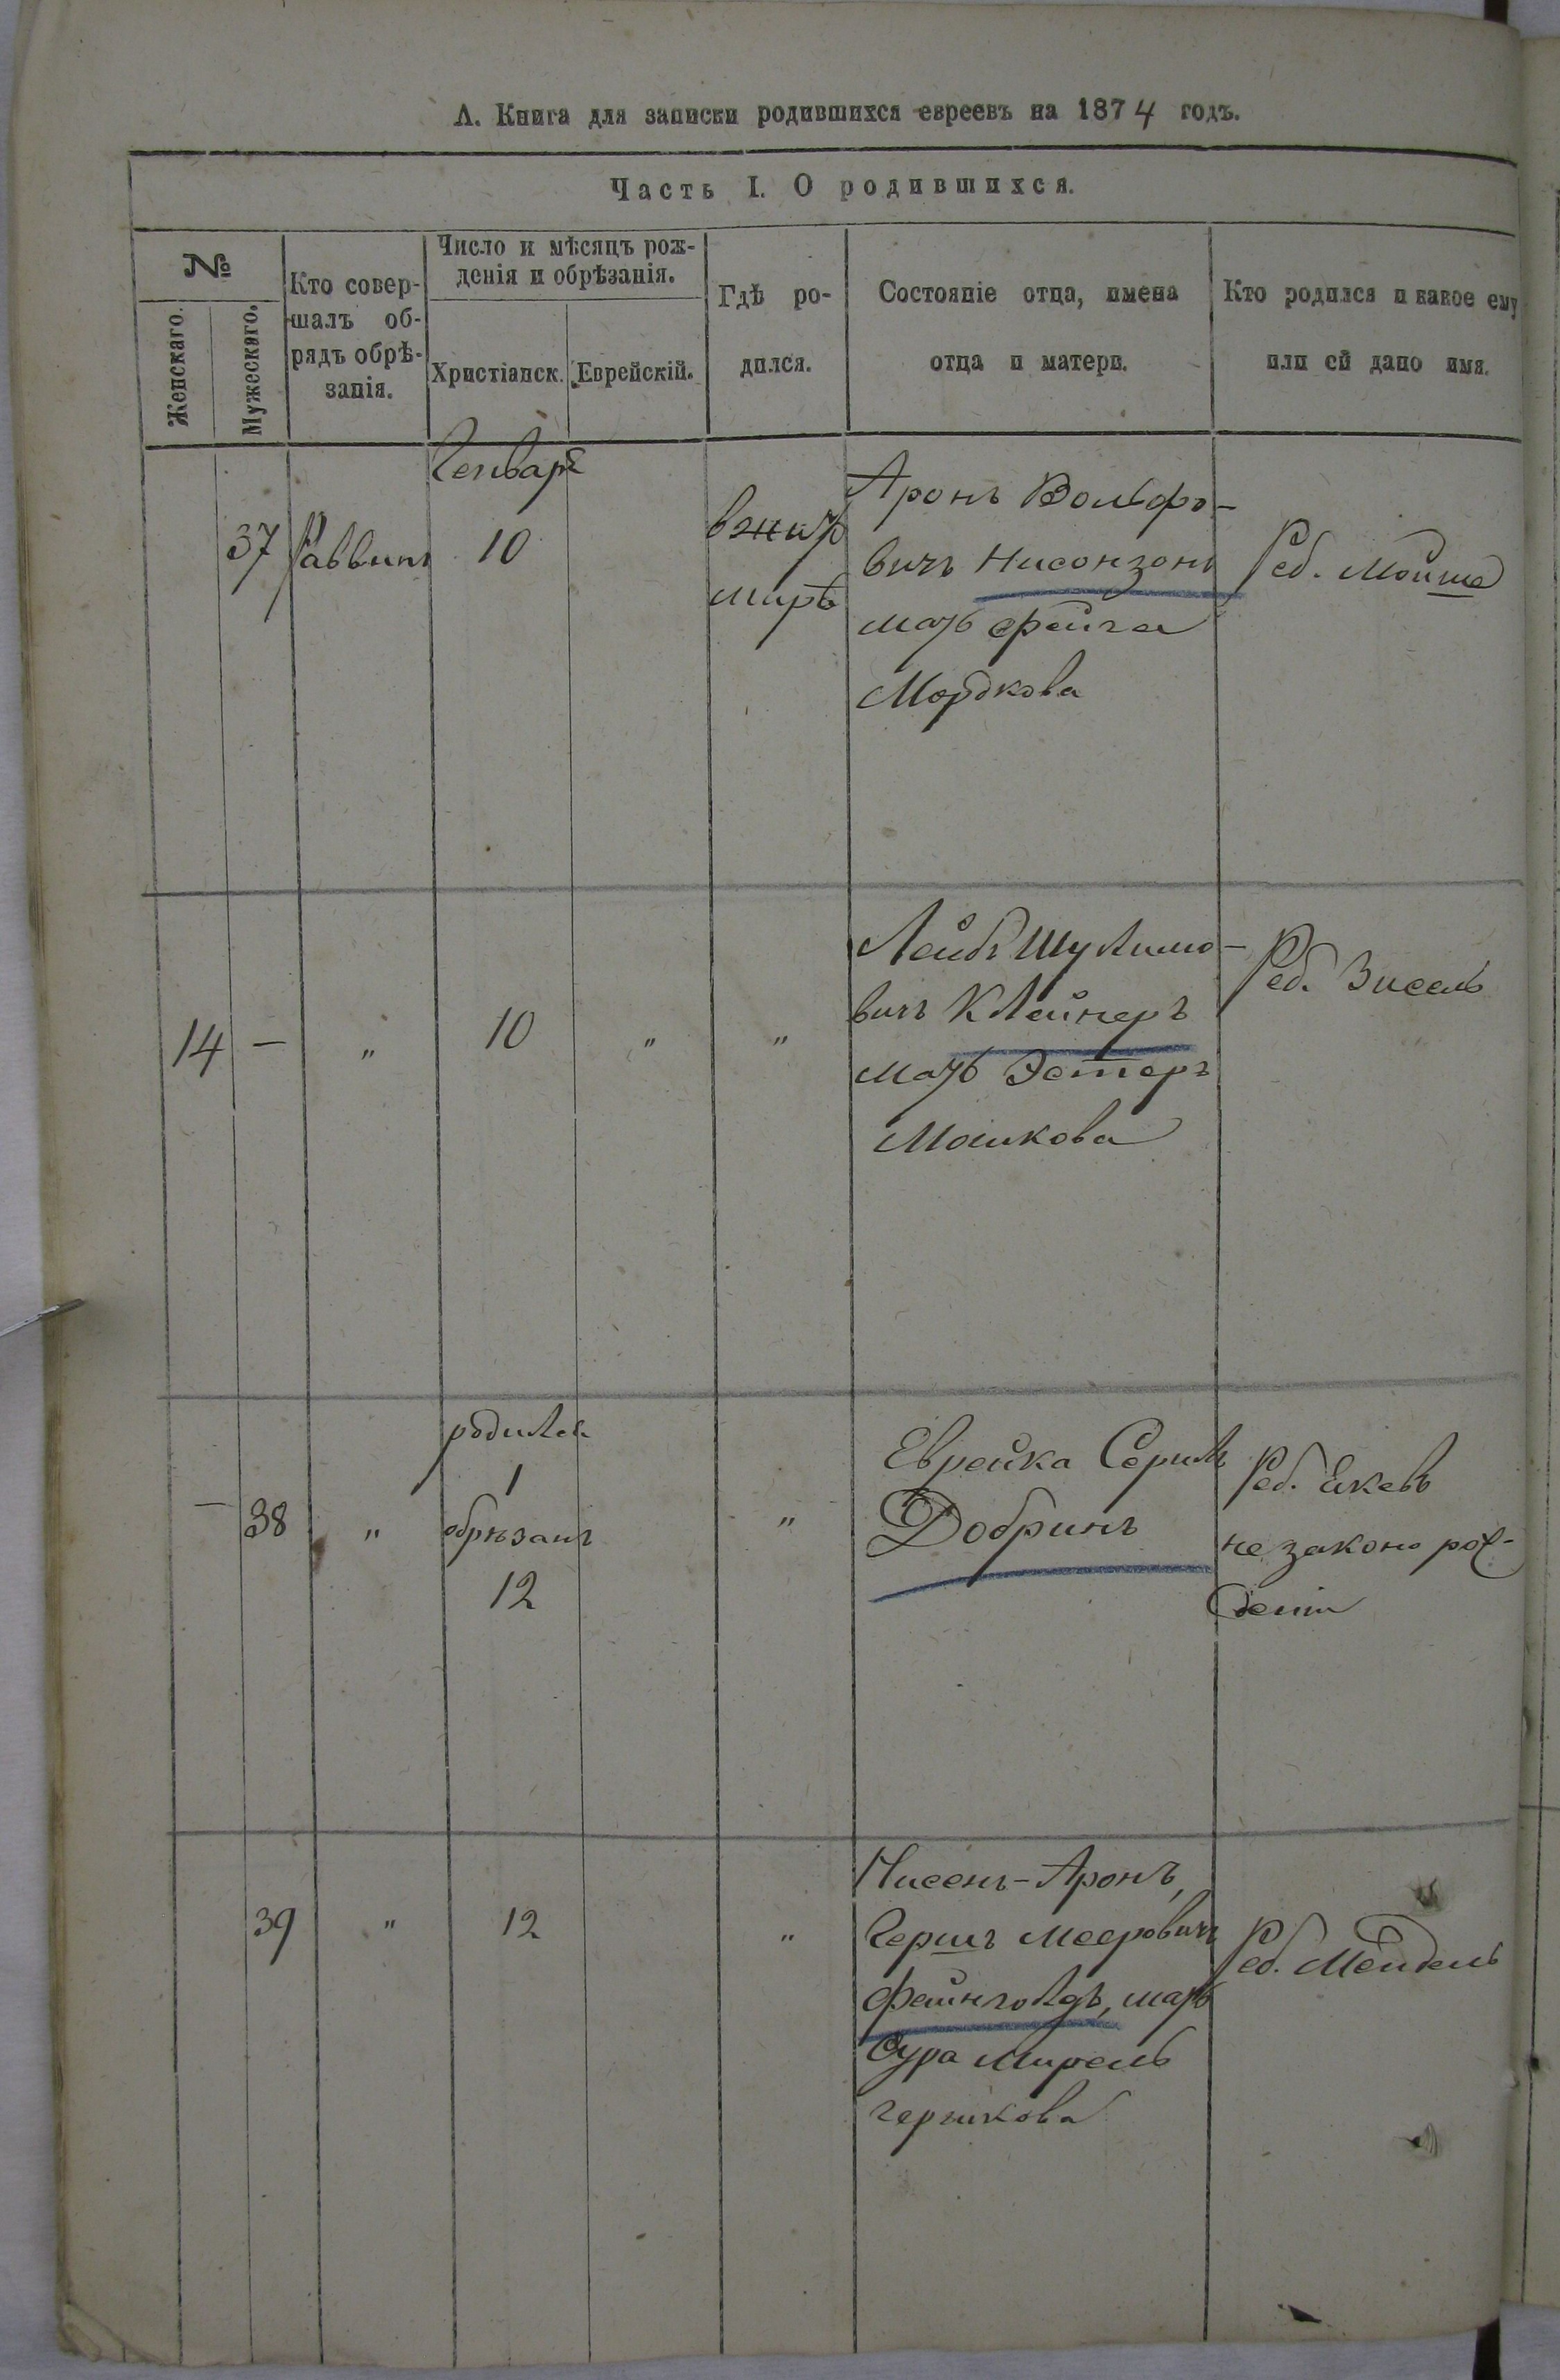 А. Книга для записки родившихся евреевъ на 1874 годъ.
Часть I. О родившихся.
№
Женскаго.
Мужескаго.
Кто совер-
шалъ об-
рядъ обрѣ-
занія.
Число и мѣсяцъ рож-
денія и обрѣзанія.
Христіанск.
Еврейскій.
Гдѣ ро-
дился.
Состояніе отца, имена
отца и матери.
Кто родился и какое ему
или ей дано имя.
Генварѣ
37
Раввинъ
10
в жит
мирѣ
Аронъ Вольфо-
вичъ Нисонзонъ
мать Фейга
Мордкова
Реб. Мойше
14
—
"
10
"
"
Лейбъ Шулимо-
вичъ Клейнеръ
мать Эстеръ
Мошкова
Реб. Зисель
—
38
"
родился
1
обрѣзанъ
12
"
Еврейка Серилъ
Добринъ
Реб.
не законо рож-
денін
39
"
12
"
Нисенъ-Аронъ,
Гершъ Меровичъ
Фейнголдъ, мать
Сура Мирель
Гершкова
Реб. Мендель